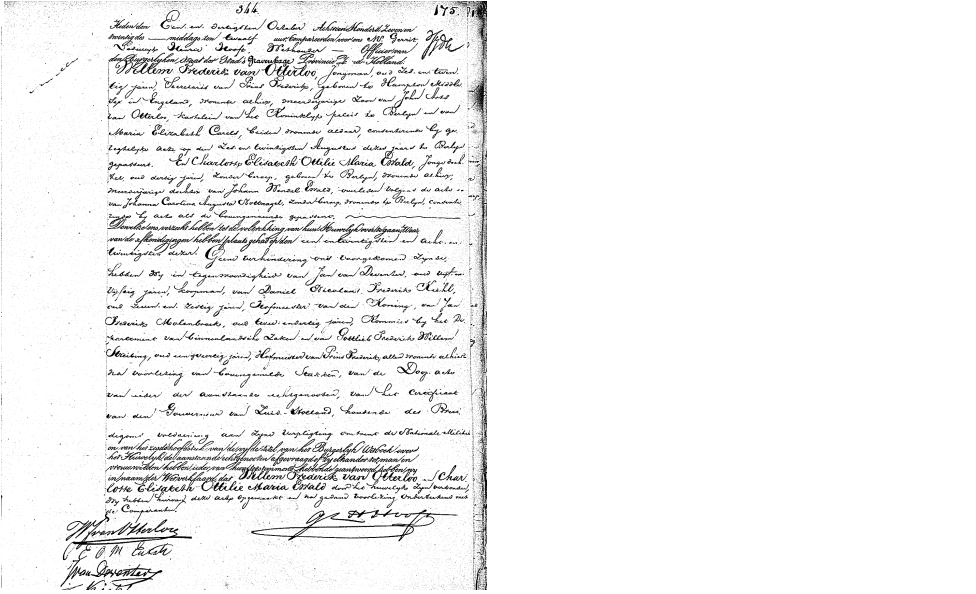 344
175
Heden den Een en dertigsten October Achttien Honderd Zeven en
twintig des middags ten twaalf ure, Compareerden voor ons Mr. Gerrit
Lodewijk Henric Hooft, Wethouder Officier van
den Burgerlyken Staat der Stad 's Gravenhage, Provincie Holland.
Willem Frederick van Otterloo, Jongman, oud Zes en twin-
tig jaren, Secretaris van Prins Frederik, geboren te Hampton Middle-
sex in Engeland, wonende alhier, meerderjarige Zoon van John
van Otterloo, kastelein van het Koninklyk paleis te Berlyn en van
Maria Elizabeth Carels, beiden wonende aldaar, consenterende by ge-
regtelyke acte op den Zes en twintigsten Augustus dezes jaars te Berlyn
gepasseerd. En Charlotte Elisabeth Ottilie Maria Ewald, Jonge doch-
ter, oud dertig jaren, Zonder beroep, geboren te Berlyn, wonende alhier,
meerderjarige dochter van Johann Wenzel Ewald, overleden volgens de acte en
van Johanna Carolina Augusta Zonder beroep, wonende te Berlyn, consente-
rende by acte als de bovengemelde gepasseerd.
Dewelke ons verzocht hebben tot de voltrekking van hun Huwelyk over te gaan, Waar
van de afkondigingen hebben plaats gehad op den een en twintigsten en acht en
twintigsten dezer. Geene verhindering ons voorgekomen Zynde,
hebben Wy in tegenwoordigheid van Jan van Deventer, oud
vyftig jaren, koopman, van Daniel Nicolaas Frederik Kiehl,
oud Zeven en Zestig jaren, Hofmeester van den Koning, van Jan
Frederik Molenbroek, oud twee en dertig jaren, Kommies by het De-
partement van binnenlandsche Zaken en van Gottlieb Frederik Willem
oud een en veertig jaren, Hofmeester van Prins Frederik, allen wonende alhier,
na voorlezing van bovengemelde Stukken, van de Doop acte
van ieder der aanstaande echtgenooten, van het certificaat
van den Gouverneur van Zuid-Holland, houdende des Brui-
degoms voldoening aan Zyne verpligting omtrent de Nationale Militie
en van het zesde hoofdstuk van den vyfden titel van het Burgerlyk Wetboek over
het Huwelyk, de aanstaande echtgenooten afgevraagd of zy elkander tot man en
vrouw wilden hebben, ieder van hun
in naam der Wet verklaard, dat Willem Frederick van Otterloo en Char-
lotte Elisabeth Ottilie Maria Ewald door het huwelyk Zyn verbonden.
Wy hebben hiervan deze acte opgemaakt en na gedane voorlezing onderteekend met
de Comparanten.
G L H Hooft
W F van Otterloo
C E O M Ewald
J van Deventer
Kiehl